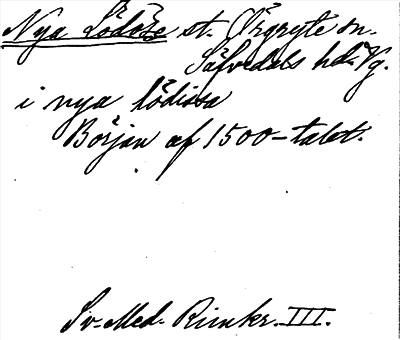 Nya Lödöse st. Örgryte sn.
Säfvedals hd. Vg.
i nya lödissa
Början af 1500-talet.
Sv. Med. Rimkr. III.